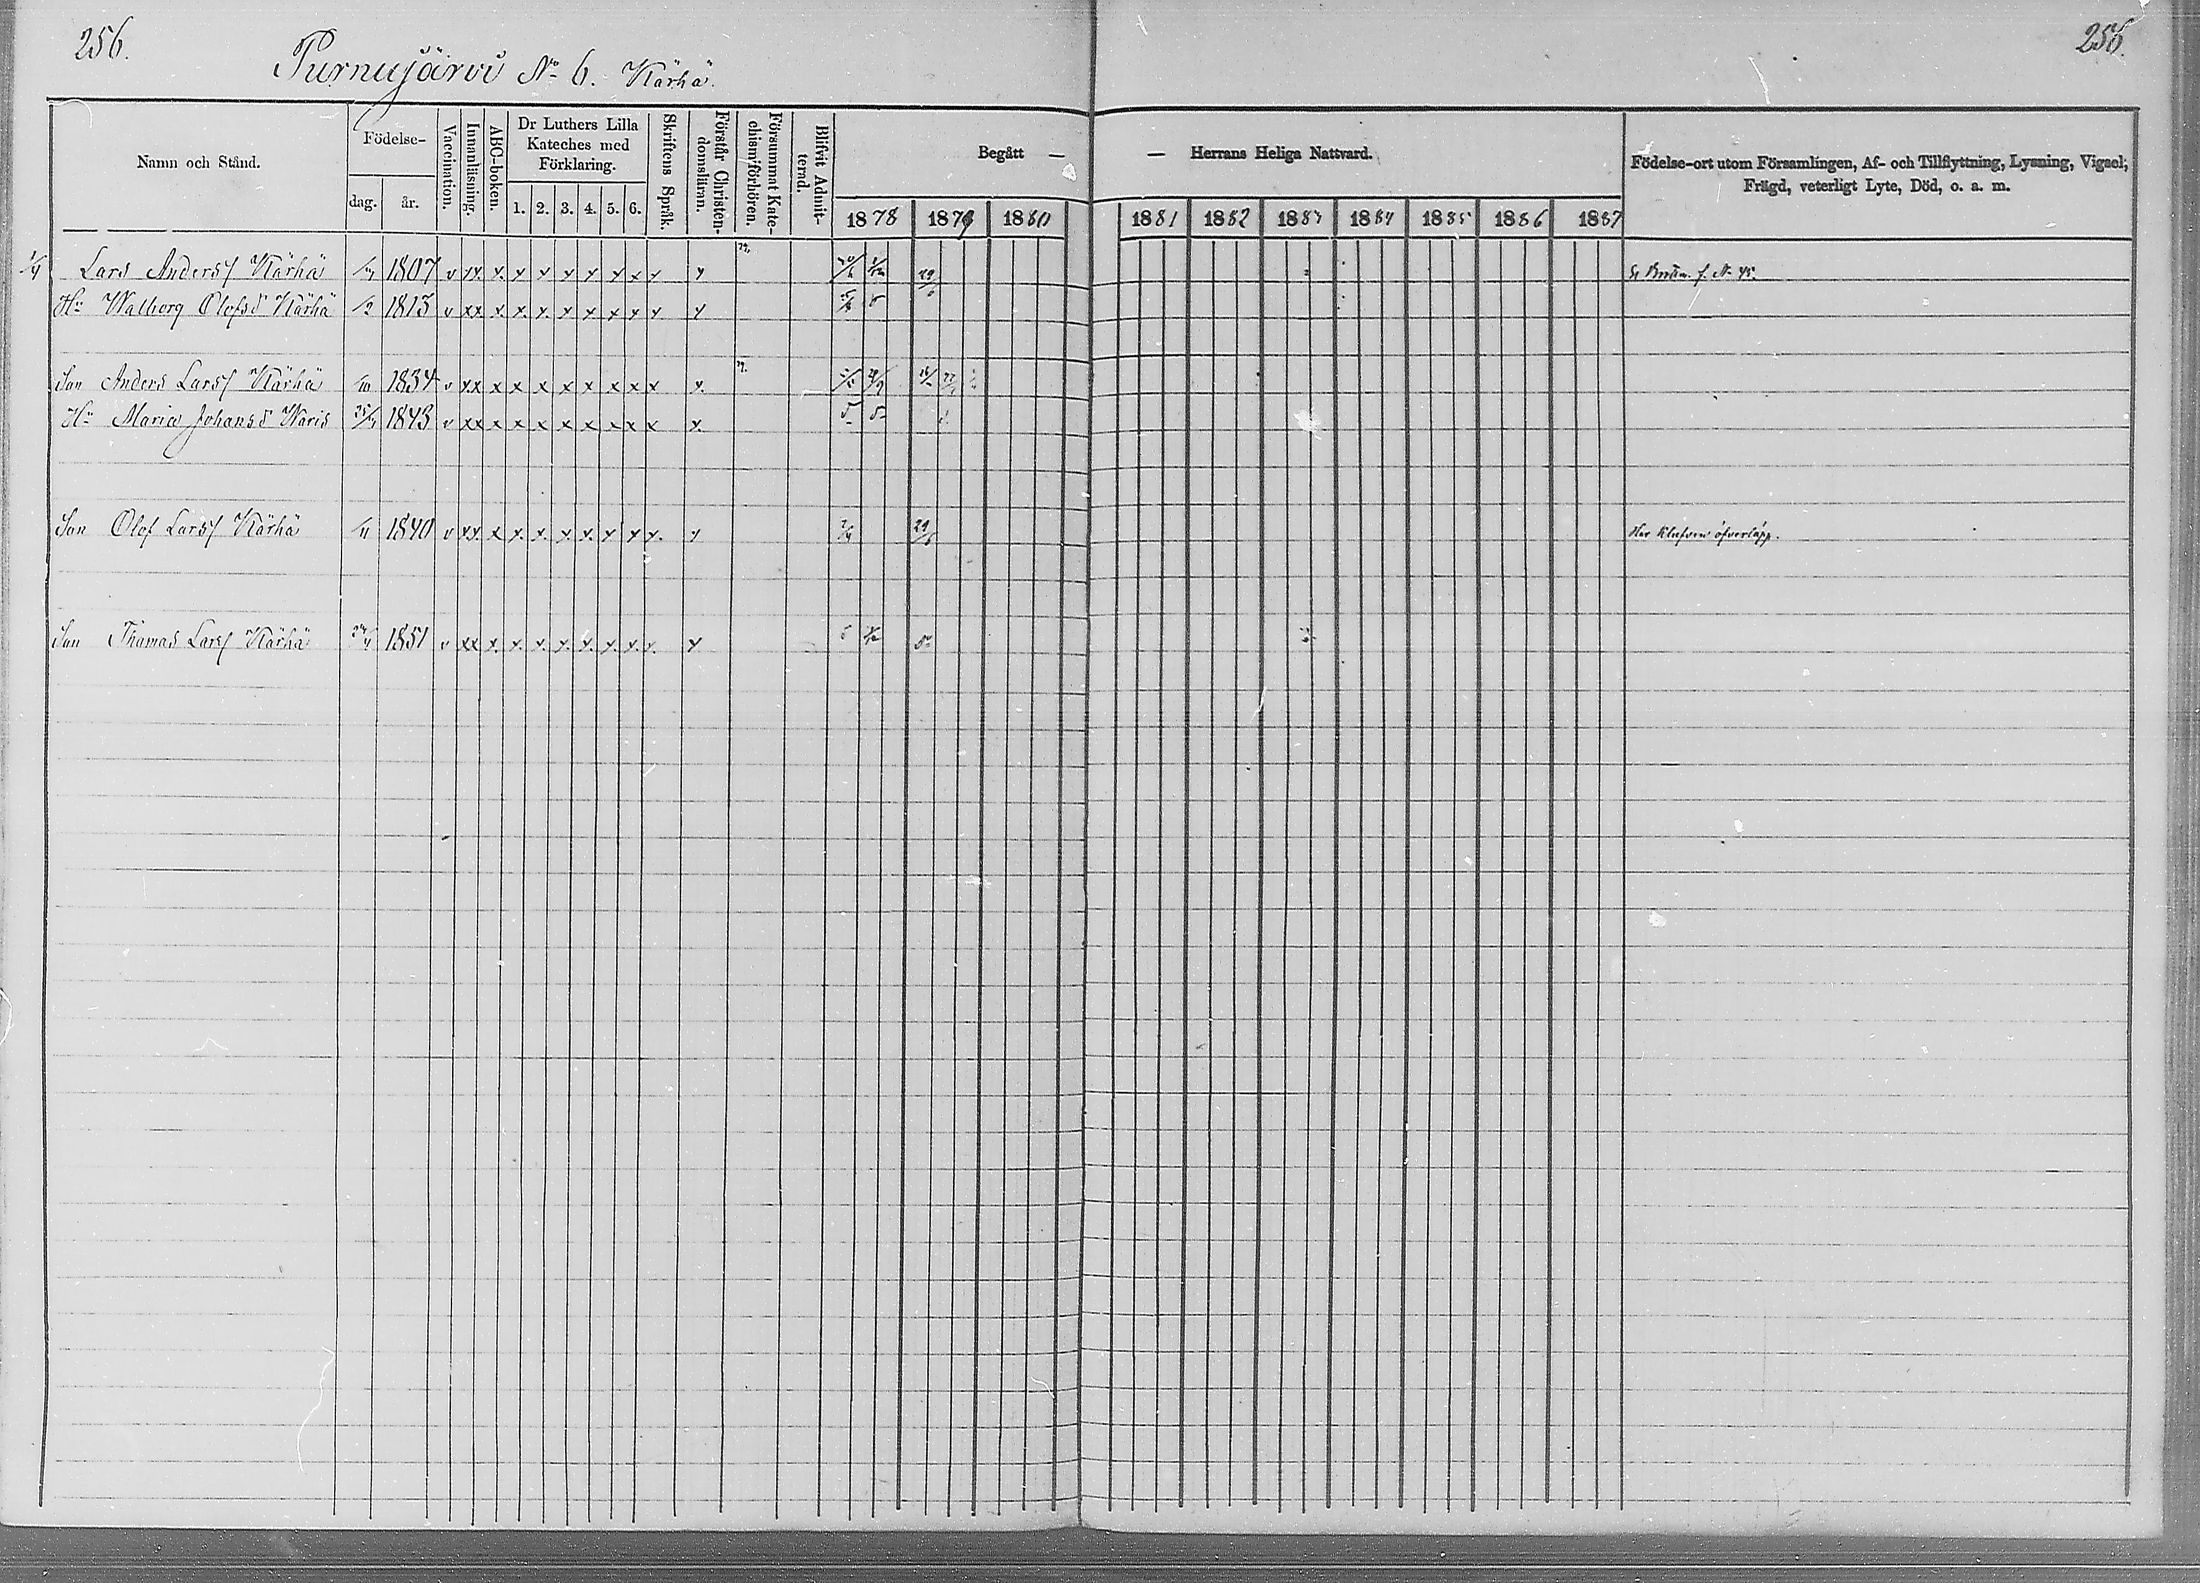 256.
256.
Purnujärvi No 6. Kärhä.
Namn och Stånd.
Födelse-
dag.
år.
Vaccination.
Innanläsning.
ABC-boken.
Dr Luthers Lilla
Kateches med
Förklaring.
1. 2. 3. 4. 5. 6.
Skriftens Språk.
Förstår Christen-
domsläran.
Försummat Kate-
chismiförhören.
Blifvit Admit-
terad.
Begått —
— Herrans Heliga Nattvard.
1878 1879 1880 1881 1882 1883 1884 1885 1886 1887
Födelse-ort utom Församlingen, Af- och Tillflyttning, Lysning, Vigsel,
Frägd, veterligt Lyte, Död, o. a. m.
1/4 Lars Anders/ Kärhä 1807 v xx x x x x x x x x x 29/6
Hu Walborg Olofsd Kärhä /2 1813 v xx x x x x x x x x x
Son Anders Lars/ Kärhä /10 1834 v xx x x x x x x x x x
Hu Maria Johansd Waris 1843 v xx x x x x x x x x x
Son Olof Lars/ Kärhä /11 1840 v xx x x x x x x x x x 29/6 Har klufven öfverläpp.
Son Thomas Lars/ Kärhä 1851 v xx x x x x x x x x x